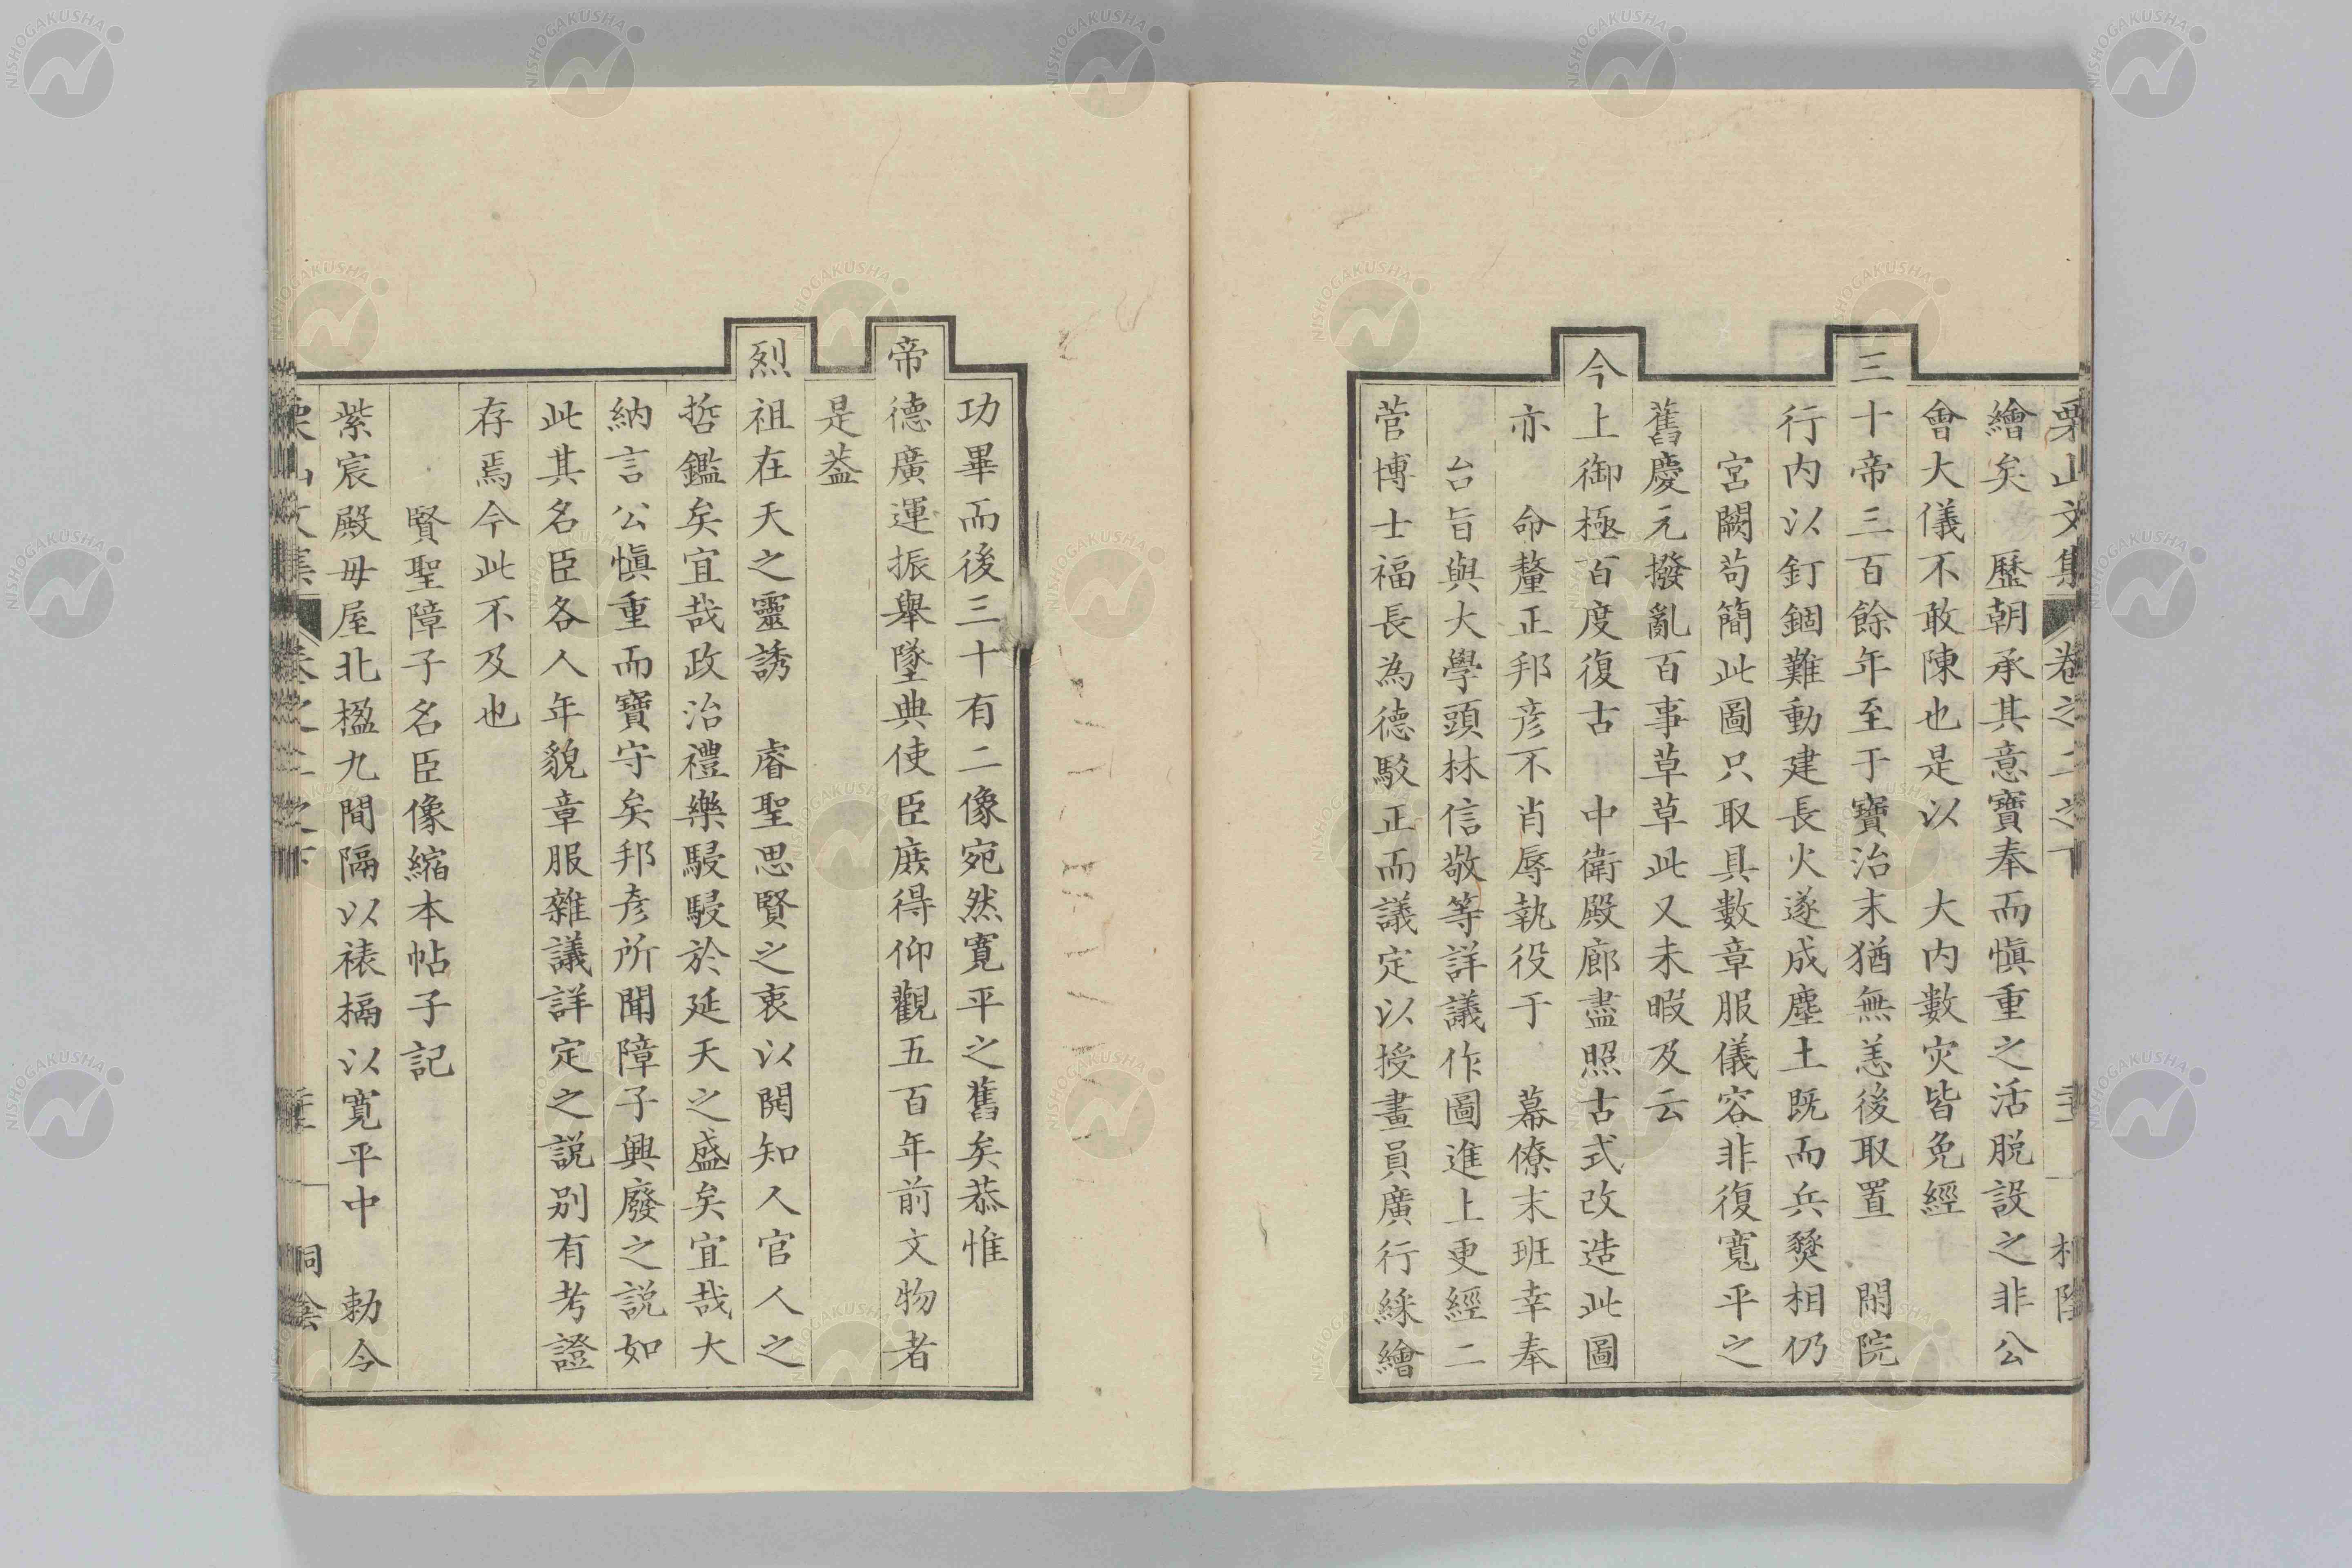 栗山文集 卷之二之下
繪矣 歷朝承其意寶奉而愼重之活脱設之非公
會大儀不敢陳也是以 大内數灾皆免經
三十帝三百餘年至于寶治末猶無恙後取置 閑院
行内以釘錮難動建長火遂成塵土既而兵燹相仍
宮闕苟簡此圖只取具數章服儀容非復寬平之
舊慶元撥亂百事草草此又未暇及云
今上御極百度復古 中衛殿廊盡照古式改造此圖
亦 命釐正邦彦不肖辱執役于 幕僚末班幸奉
台旨與大學頭林信敬等詳議作圖進上更經二
菅博士福長為德駁正而議定以授畫員廣行綵繪
功畢而後三十有二像宛然寬平之舊矣恭惟
帝德廣運振舉墜典使臣庶得仰觀五百年前文物者
是葢
烈祖在天之靈誘 睿聖思賢之衷以開知人官人之
哲鑑矣宜哉政治禮樂駸駸於延天之盛矣宜哉大
納言公愼重而寶守矣邦彦所聞障子興廢之説如
此其名臣各人年貌章服雜議詳定之説別有考證
存焉今此不及也
賢聖障子名臣像縮本帖子記
紫宸殿毋屋北楹九間隔以裱槅以寛平中 勅令
NISHOGAKUSHA